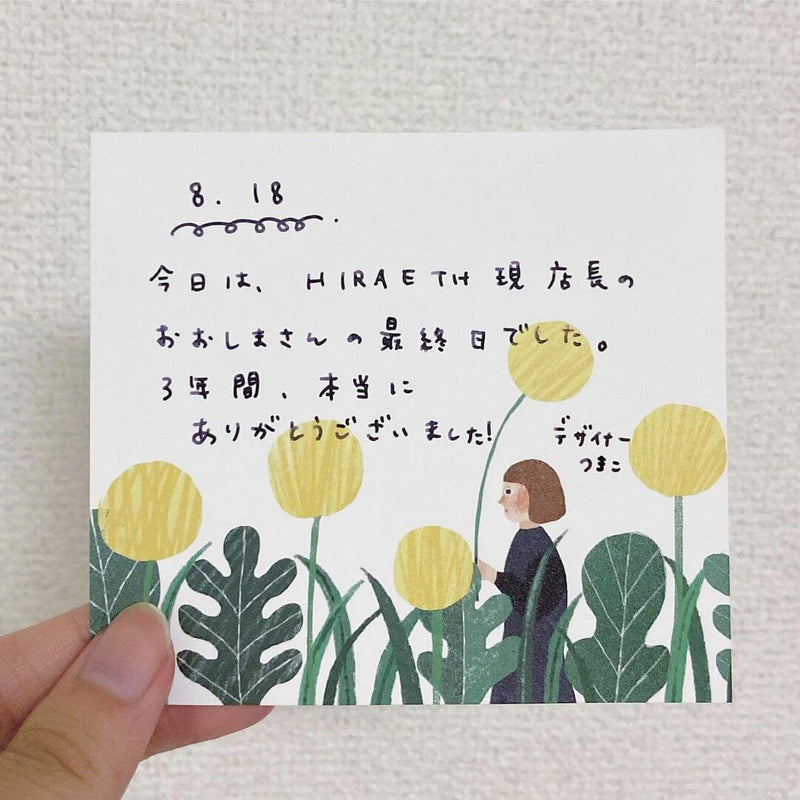 8.18
今日は、HIRAETH現店長の
おおしまさんの最終日でした。
3年間、本当に
ありがとうございました!
デザイナー
つまこ